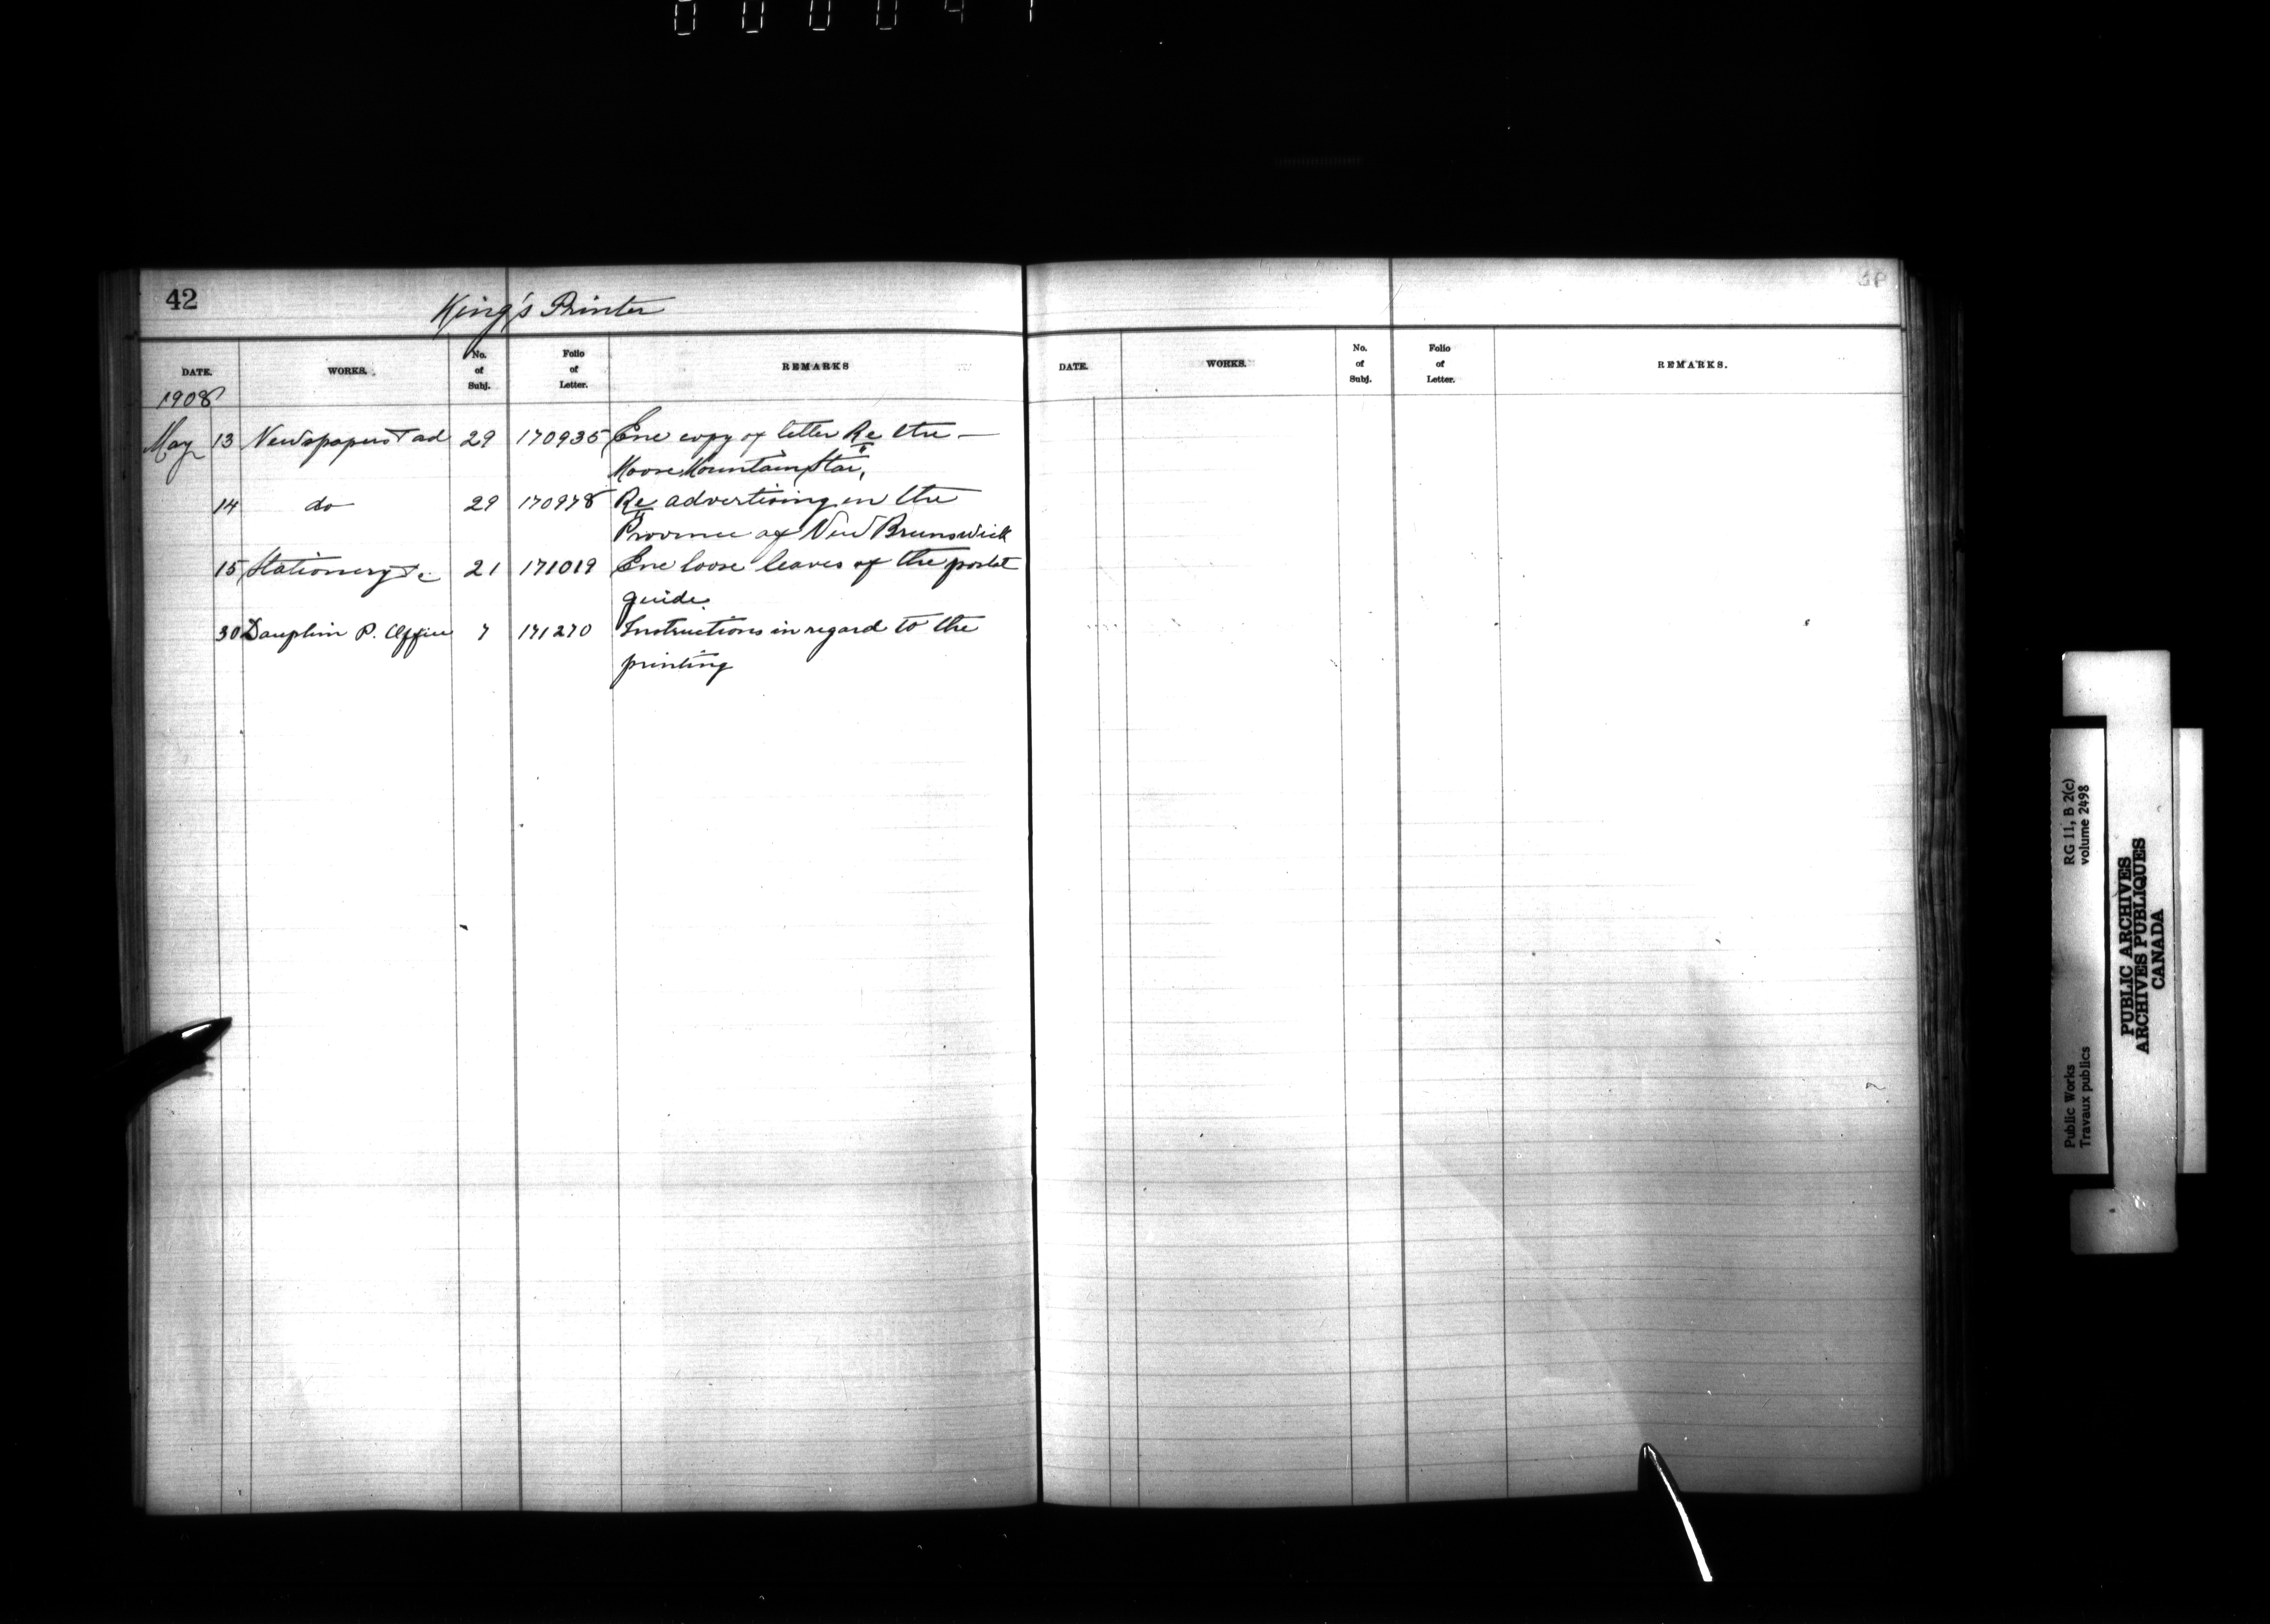 42
King's Printer
DATE. WORKS. No. of Subj. Folio of Letter. REMARKS
1908
May 13 Newspapers & ad 29 170935 Enc copy of letter Re the —
Moose Mountain Star,
14 do 29 170978 Re advertising in the
Province of New Brunswick
15 Stationery &c 21 171019 Enc loose leaves of the postal
guide.
30 Dauphin P. Office 7 171270 Instructions in regard to the
printing
DATE. WORKS. No. of Subj. Folio of Letter. REMARKS.
Public Works RG 11, B 2(c)
Travaux publics volume 2498
PUBLIC ARCHIVES
ARCHIVES PUBLIQUES
CANADA